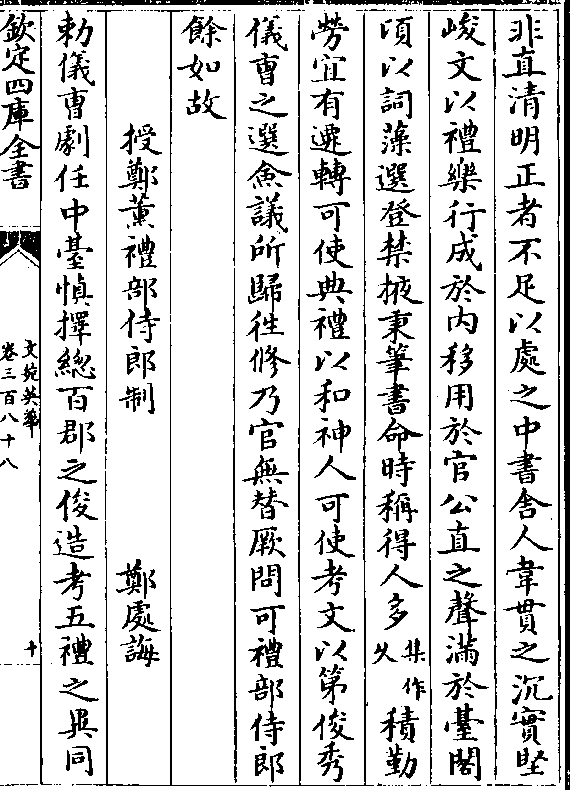 非直清明正者不足以處之中書舍人韋貫之沉實堅
峻文以禮樂行成於内移用於官公直之聲滿於臺閣
頃以詞藻選登禁掖秉筆書命時稱得人多集作久積勤
勞宜有遷轉可使典禮以和神人可使考文以第俊秀
儀曹之選僉議所歸往修乃官無替厥問可禮部侍郎
餘如故
授鄭薰禮部侍郎制 鄭處誨
勅儀曹劇任中臺慎擇總百郡之俊造考五禮之異同
欽定四庫全書
文苑英華
卷三百八十八
十